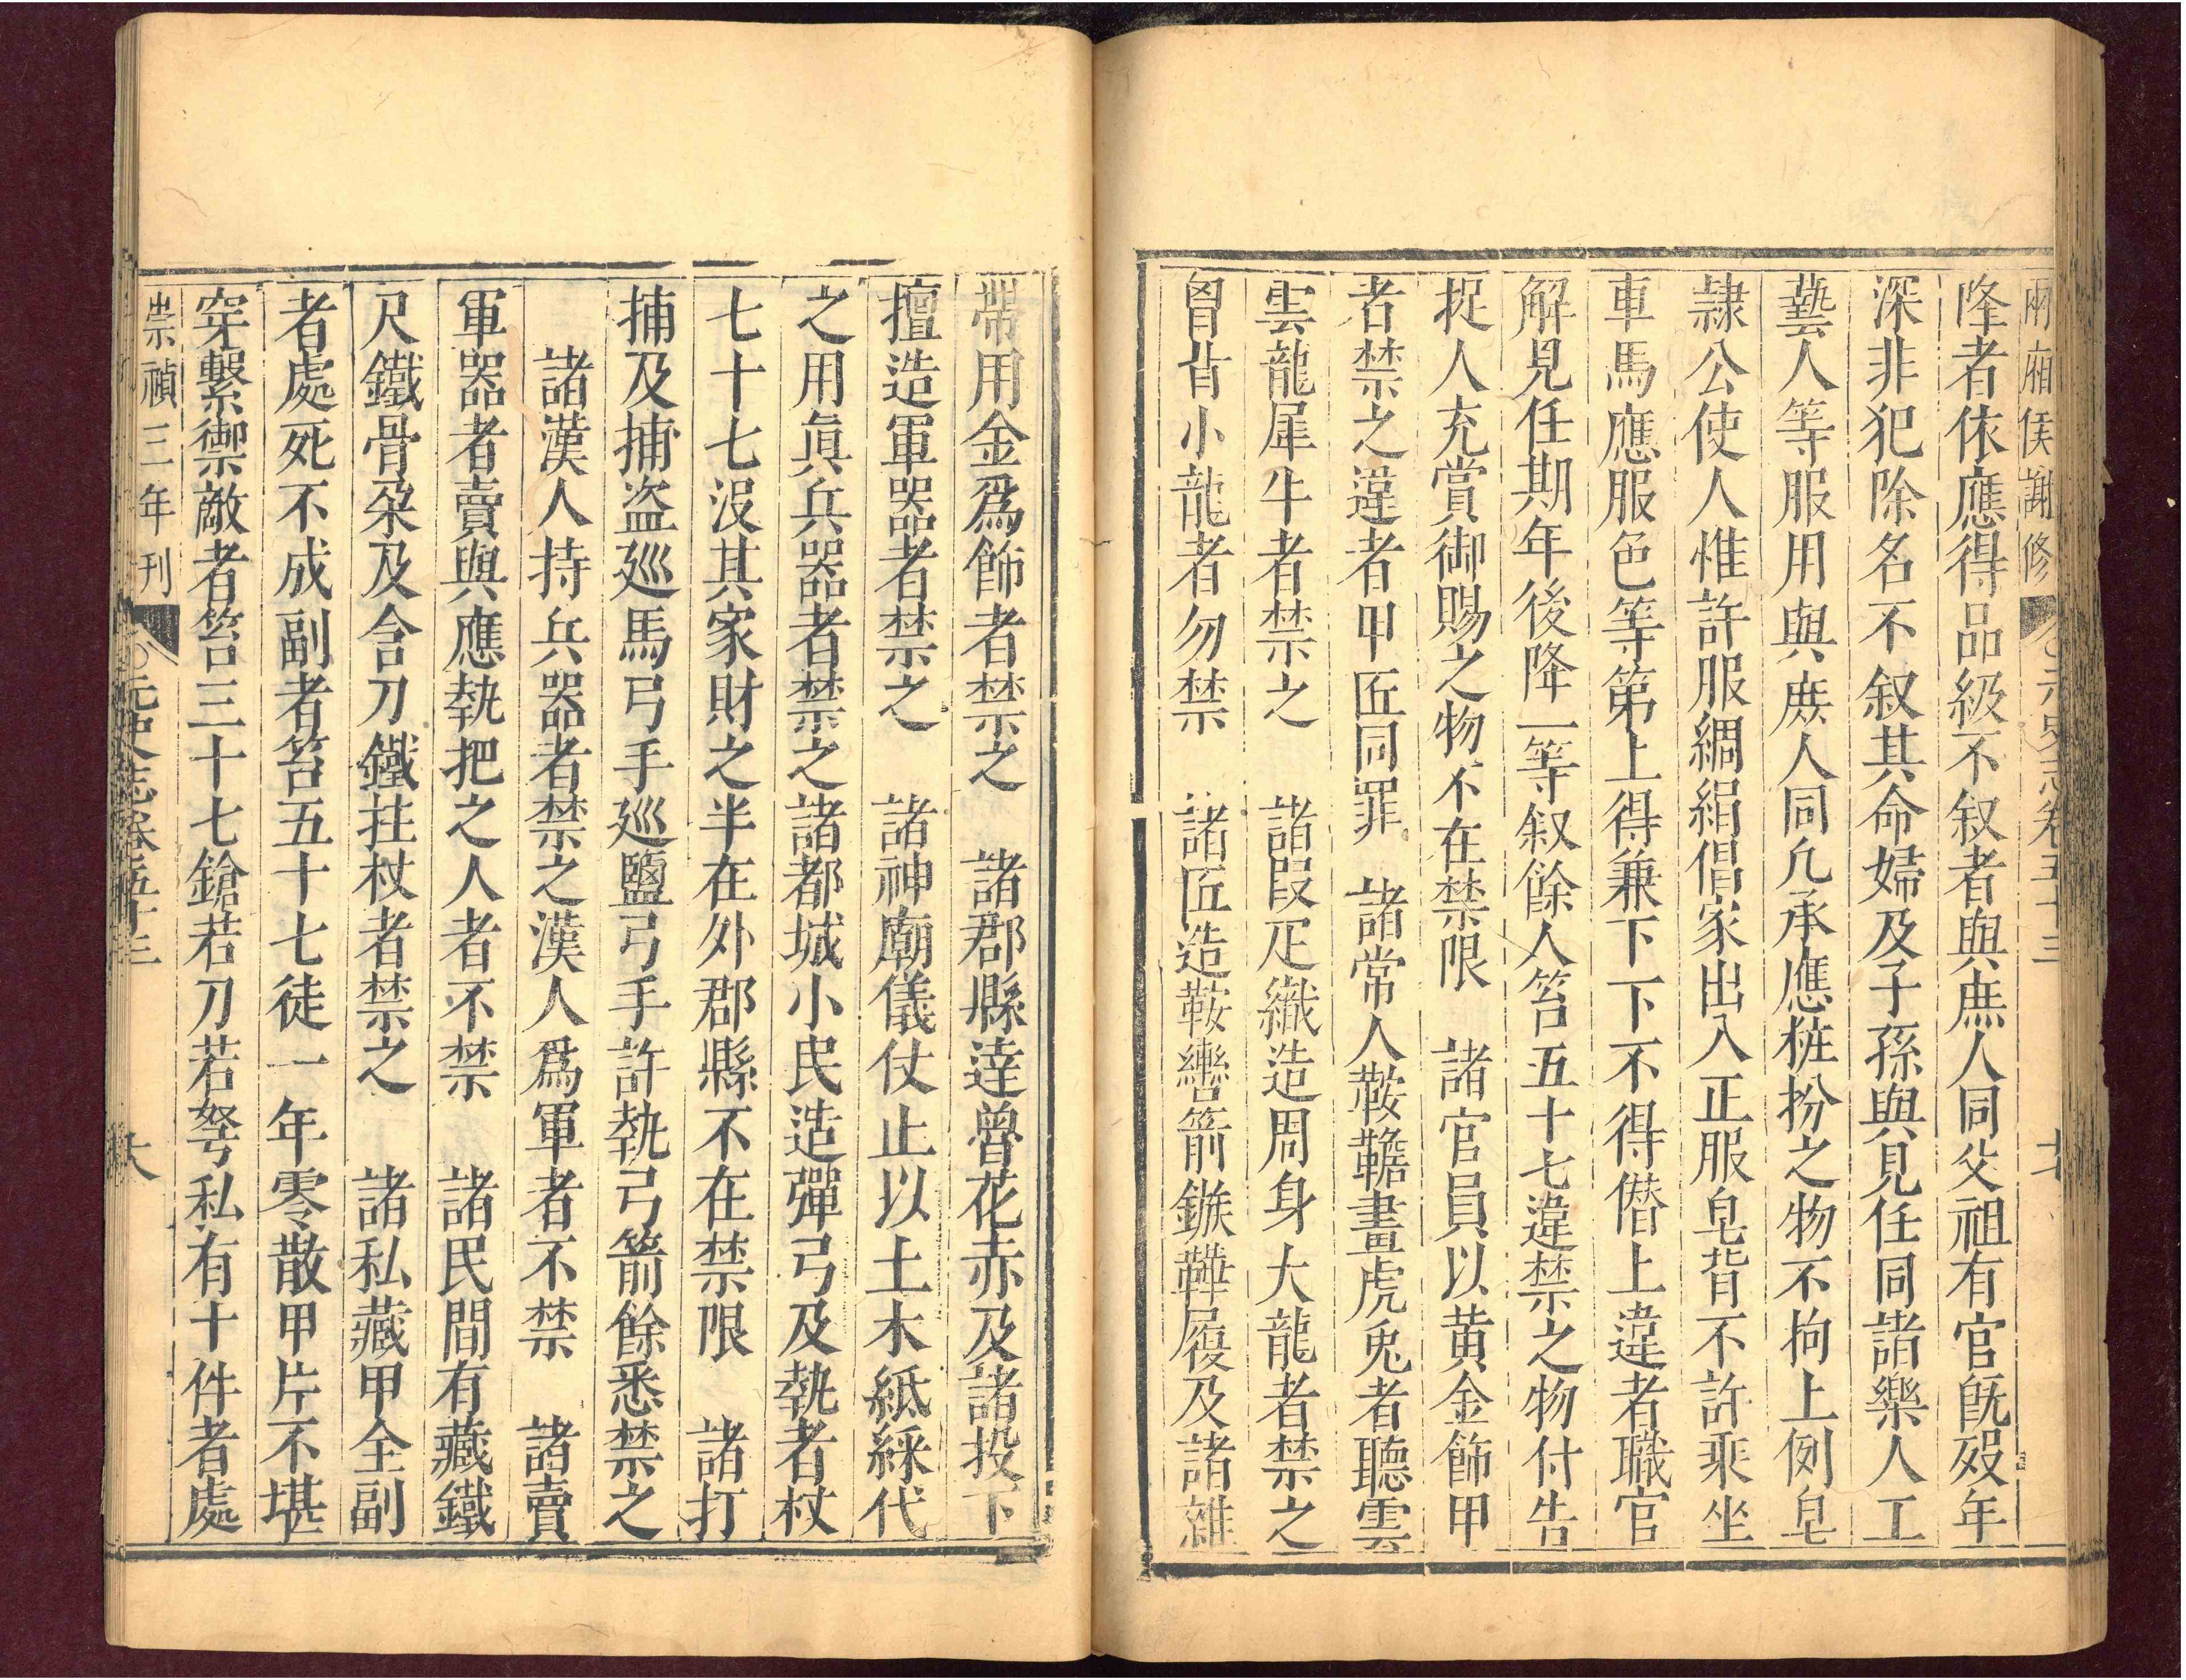 兩廂侯謝修 〇元史志卷五十三 十七
降者依應得品級不叙者與庶人同父祖有官既歿年
深非犯除名不叙其命婦及子孫與見任同諸樂人工
藝人等服用與庶人同凡承應粧扮之物不拘上例皂
隷公使人惟許服綢絹倡家出入正服皂背不許乘坐
車馬應服色等第上得兼下下不得僣上違者職官
解見任期年後降一等叙餘人笞五十七違禁之物付告
捉人充賞御賜之物不在禁限　諸官員以黄金飾甲
者禁之違者甲匠同罪　諸常人鞍韂畫虎兎者聽雲
雲龍犀牛者禁之　諸叚疋織造周身大龍者禁之
胷背小龍者勿禁　諸匠造鞍轡箭鏃鞾履及諸雜
帶用金爲飾者禁之　諸郡縣達魯花赤及諸投下
擅造軍器者禁之　諸神廟儀仗止以土木紙綵代
之用眞兵器者禁之諸都城小民造彈弓及執者杖
七十七没其家財之半在外郡縣不在禁限　諸打
捕及捕盗廵馬弓手廵鹽弓手許執弓箭餘悉禁之
諸漢人持兵器者禁之漢人爲軍者不禁　諸賣
軍器者賣與應執把之人者不禁　諸民間有藏鐵
尺鐵骨朶及含刀鐵拄杖者禁之　諸私藏甲全副
者處死不成副者笞五十七徒一年零散甲片不堪
穿繫御敵者笞三十七鎗若刀若弩私有十件者處
崇禎三年刊 〇元史志卷五十三 十八